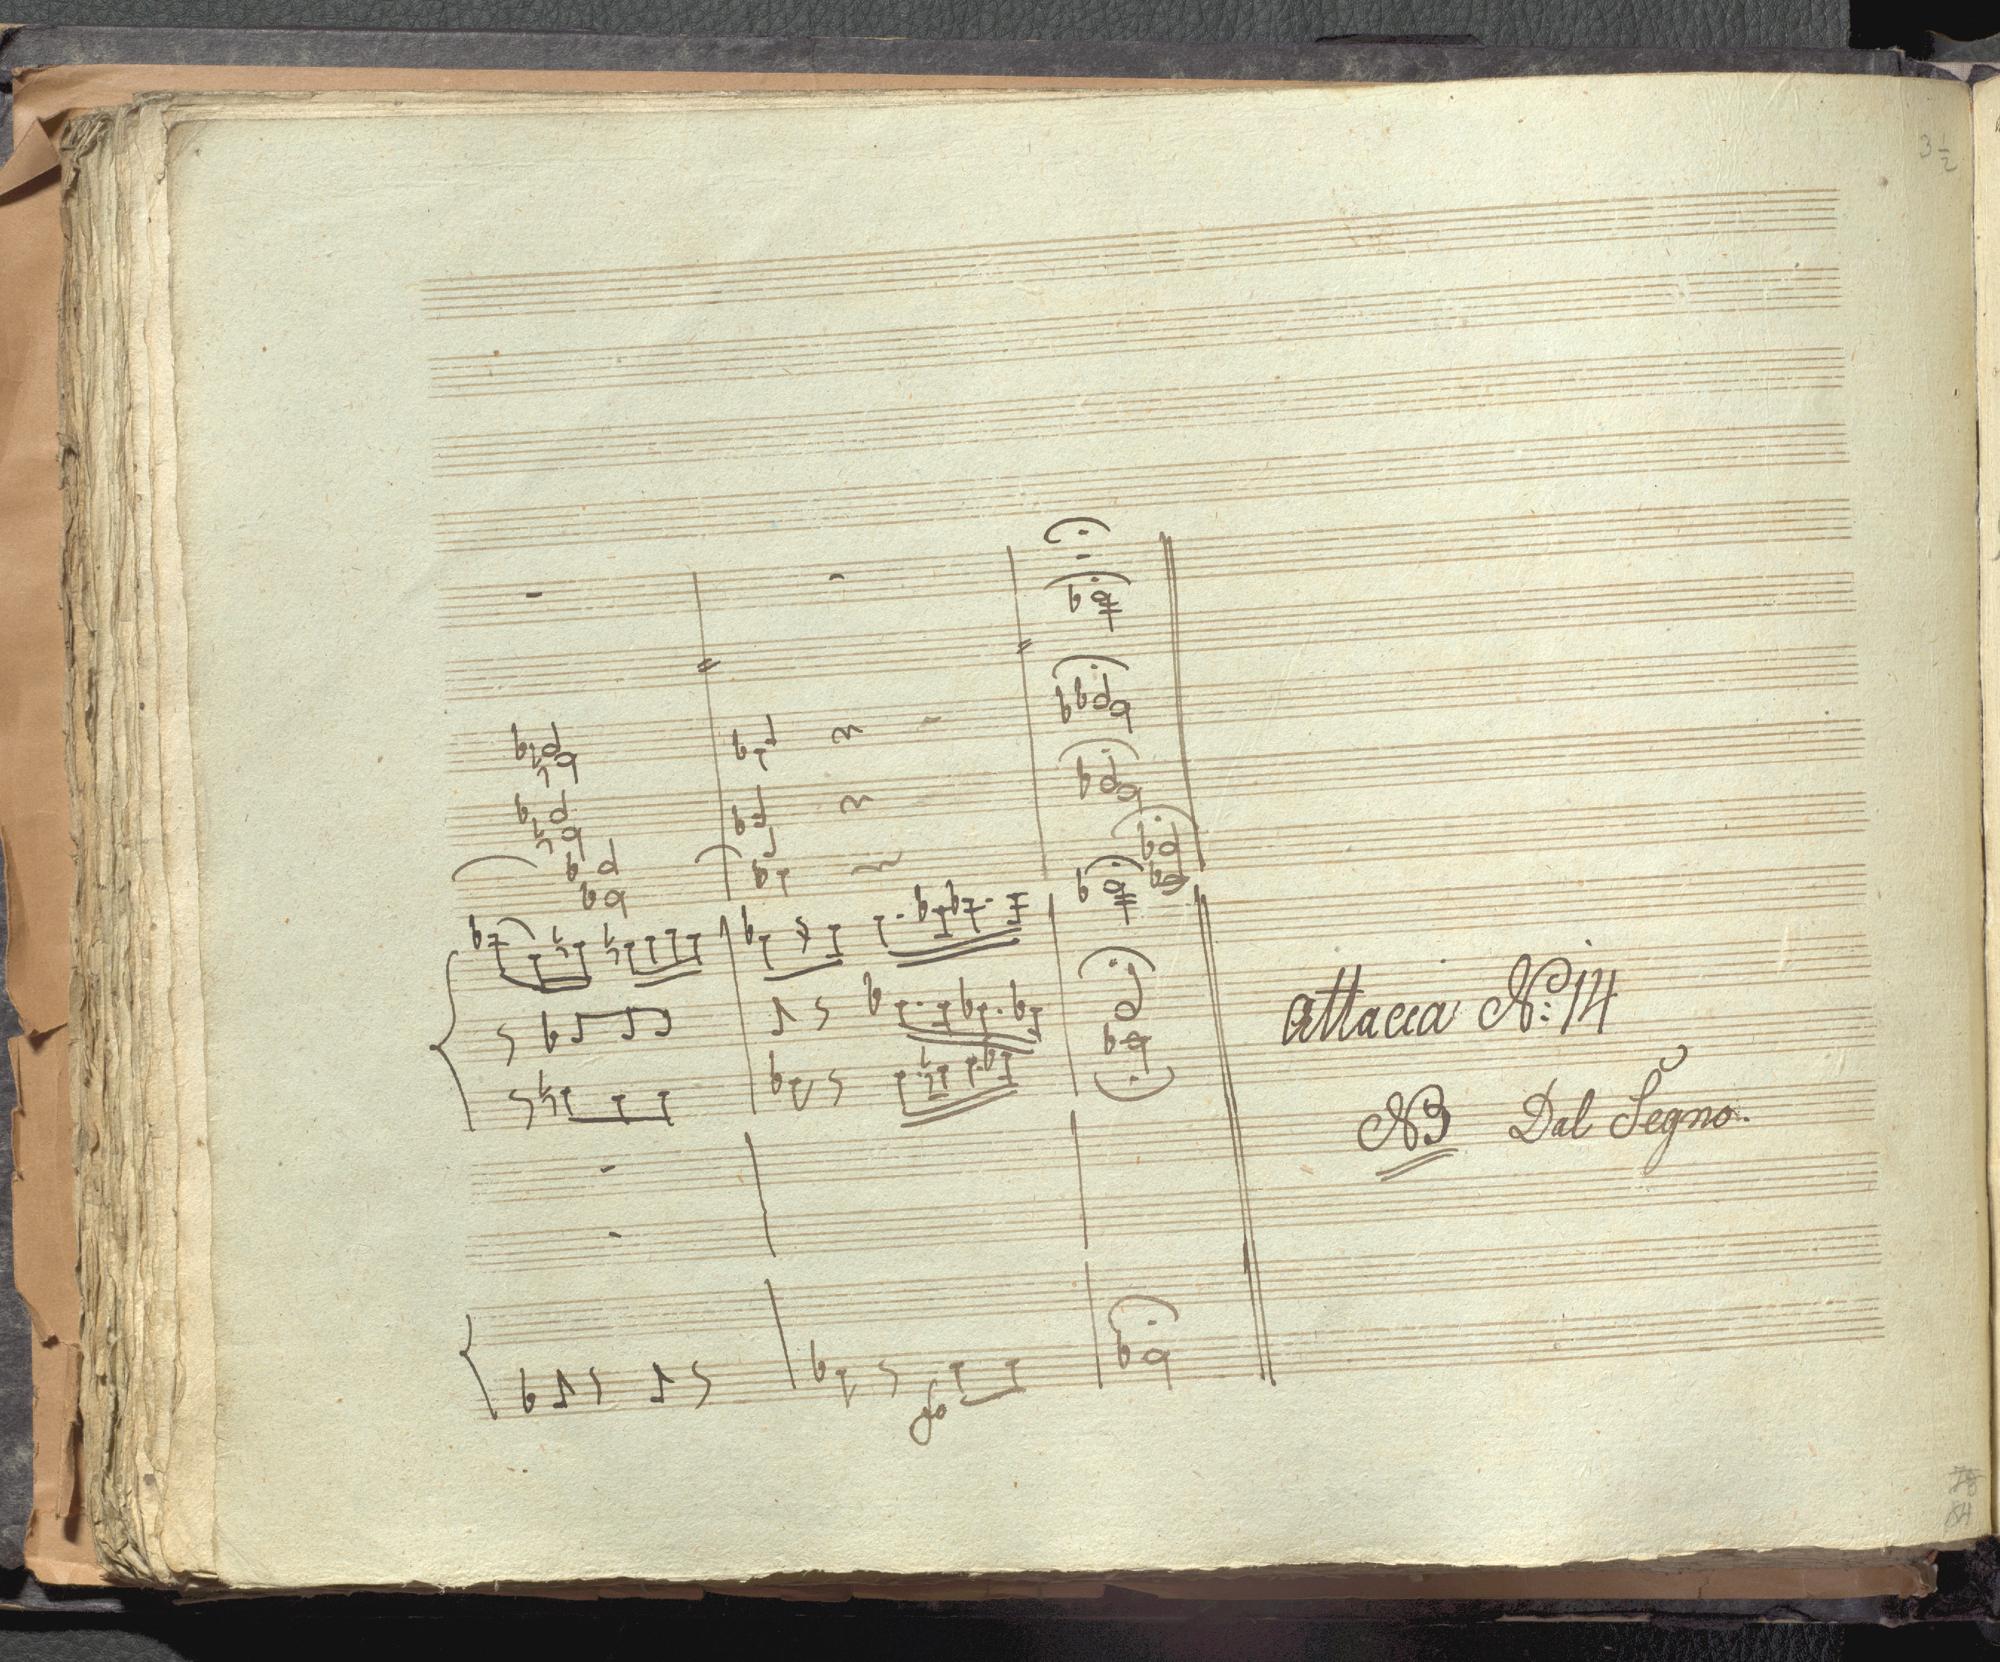 3 1/2
fo
attacca No: 14
NB Dal Segno.
84